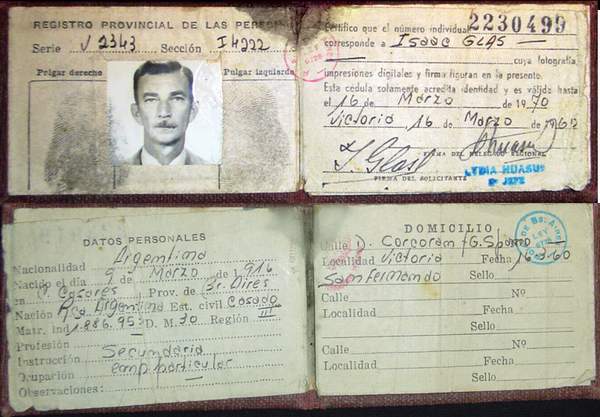 REGISTRO PROVINCIAL DE LAS PERSO
Serie J 2343 Sección I4222
Pulgar derecho Pulgar izquierdo
Certifico que el número individual 2230499
corresponde a Isaac GLAS
cuya fotografía,
impresiones digitales y firma figuran en la presente.
Esta cédula solamente acredita identidad y es válido hasta
el 16 de Marzo de 1970
Victoria 16 de Marzo de 1960
I. Glas
FIRMA DEL DELEGADO REGIONAL
FIRMA DEL SOLICITANTE
LYDIA HUASU
DATOS PERSONALES
Nacionalidad Argentina
Nacido el día 9 de Marzo de 1916
en C. Casares Prov. de Bs. Aires
Nación Rca Argentina Est. civil Casado
Matr. Ind 1.886.953 D. M. 30 Región III
Profesión
Instrucción Secundaria
Ocupación Emp. Particular
Observaciones:
DOMICILIO
Calle D. Corcoran
Localidad Victoria Fecha
San Fernando Sello
Calle Nº
Localidad Fecha
Sello
Calle Nº
Localidad Fecha
Sello
DE Bs. AIRES
LEY